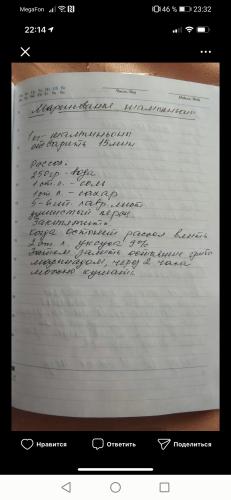 MegaFon 46 % 23:32
22:14
Маринование шампиньон
1 кг - шампиньоны
отварить 15 мин
Рассол:
250гр - вода
1 ст.л. - соль
1 ст л. - сахар
5-6 шт. лавр. лист
душистый перец.
Закипятить.
Когда остынет рассол влить
2 ст л. уксуса 9%
Потом залить остывшие грибы
маринадом, через 2 часа
можно кушать
Нравится
Ответить
Поделиться